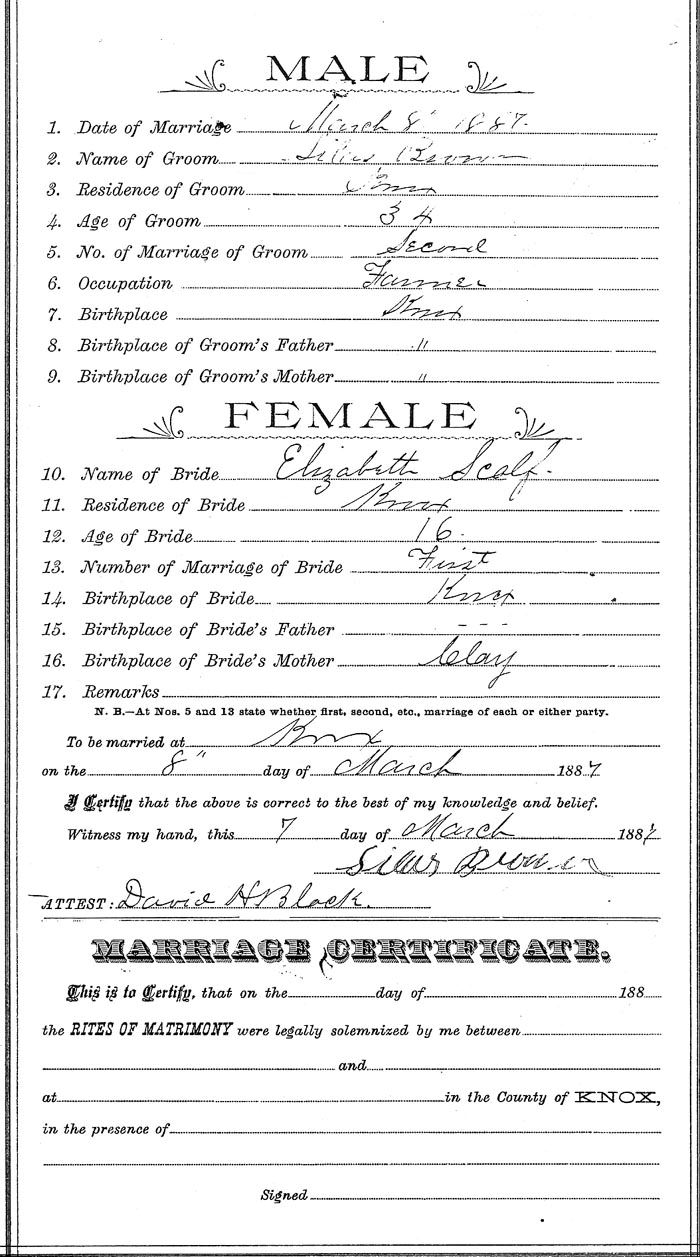 MALE
1. Date of Marriage March 8" 1887.
2. Name of Groom Silus Brown
3. Residence of Groom Knox
4. Age of Groom 34
5. No. of Marriage of Groom Second
6. Occupation Farmer
7. Birthplace Knox
8. Birthplace of Groom's Father "
9. Birthplace of Groom's Mother "
FEMALE
10. Name of Bride Elizabeth Scalf.
11. Residence of Bride Knox
12. Age of Bride 16.
13. Number of Marriage of Bride First
14. Birthplace of Bride Knox
15. Birthplace of Bride's Father - - -
16. Birthplace of Bride's Mother Clay
17. Remarks
N. B.—At Nos. 5 and 13 state whether first, second, etc., marriage of each or either party.
To be married at Knox
on the 8" day of March 1887
I Certify that the above is correct to the best of my knowledge and belief.
Witness my hand, this 7 day of March 1887
Silus Brown
ATTEST: David H Black.
MARRIAGE CERTIFICATE.
This is to Certify, that on the day of 188
the RITES OF MATRIMONY were legally solemnized by me between
and
at in the County of KNOX,
in the presence of
Signed